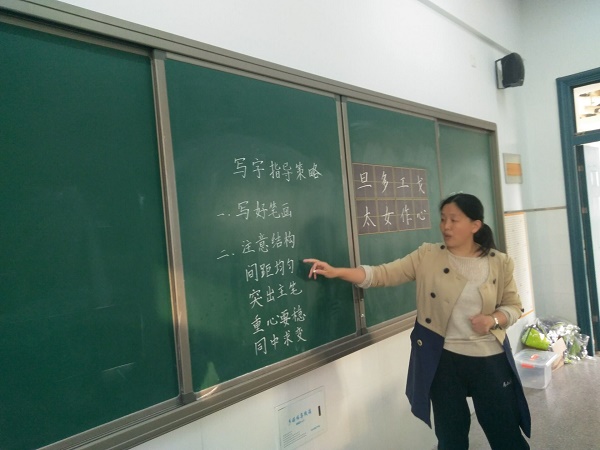 写字指导策略
一、写好笔画
二、注意结构
间距均匀
突出主笔
重心要稳
同中求变
旦多工戈
太女作心